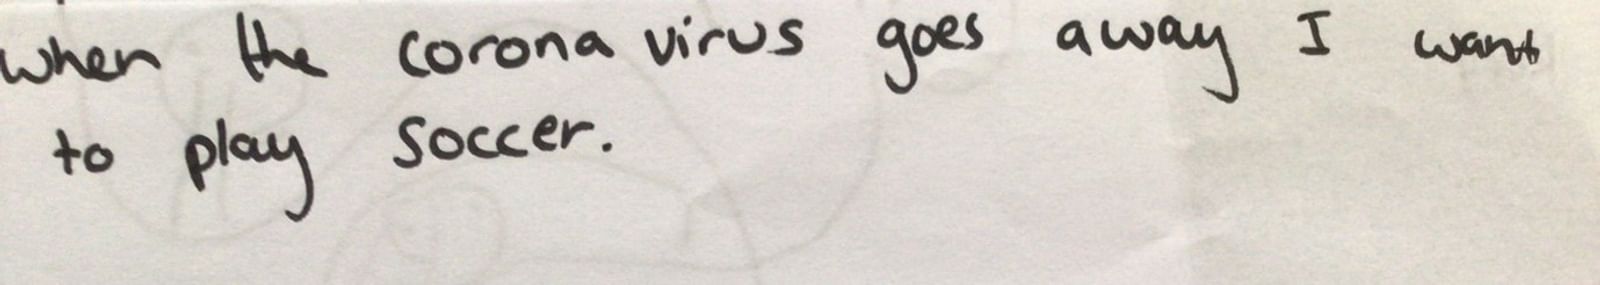 when the corona virus goes away I want
to play soccer.